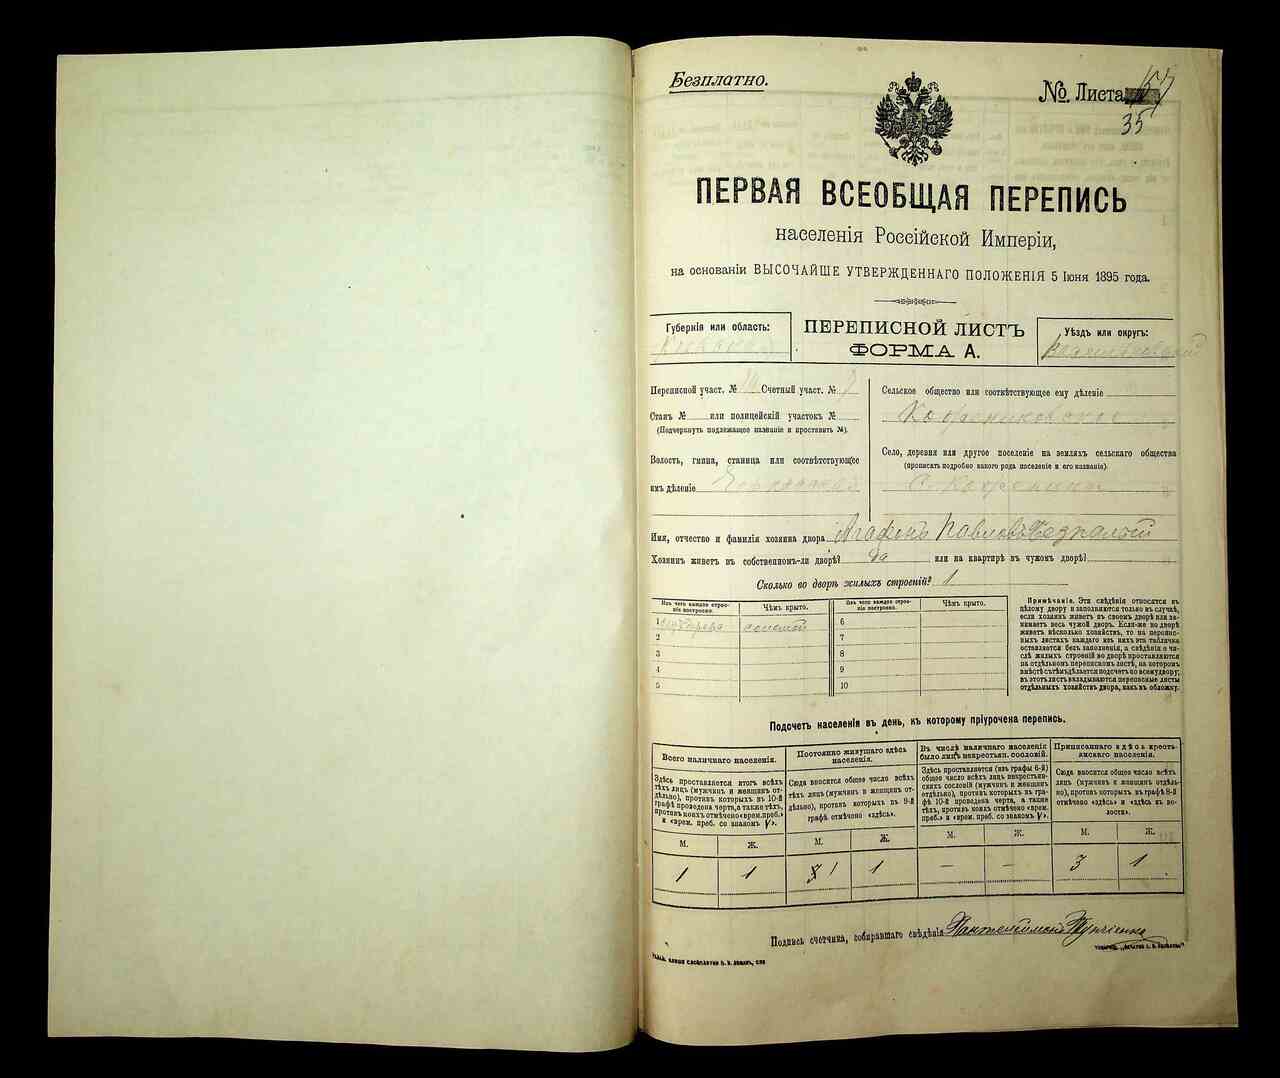 Безплатно.
№. Листа 157
35
ПЕРВАЯ ВСЕОБЩАЯ ПЕРЕПИСЬ
населенія Россійской Имперіи,
на основаніи ВЫСОЧАЙШЕ УТВЕРЖДЕННАГО ПОЛОЖЕНІЯ 5 Іюня 1895 года.
Губернія или область:
Кіевская
ПЕРЕПИСНОЙ ЛИСТЪ
ФОРМА А.
Уѣздъ или округъ:
Переписной участ. № Счетный участ. №
Станъ № или полицейскій участокъ №
(Подчеркнуть подлежащее названіе и проставить №).
Волость, гмина, станица или соотвѣтствующее
имъ дѣленіе
Сельское общество или соотвѣтствующее ему дѣленіе
Село, деревня или другое поселеніе на земляхъ сельскаго общества
(прописать подробно какого рода поселеніе и его названіе).
Имя, отчество и фамилія хозяина двора Агафонъ Павловъ
Хозяинъ живетъ въ собственномъ-ли дворѣ? да или на квартирѣ въ чужомъ дворѣ?
Сколько во дворѣ жилыхъ строеній? 1
Изъ чего каждое строе-
ніе построено.
Чѣмъ крыто.
Изъ чего каждое строе-
ніе построено.
Чѣмъ крыто.
1 соломой 6
2 7
3 8
4 9
5 10
Примѣчаніе. Эти свѣдѣнія относятся къ
цѣлому двору и заполняются только въ случаѣ,
если хозяинъ живетъ въ своемъ дворѣ или за-
нимаетъ весь чужой дворъ. Если-же во дворѣ
живетъ нѣсколько хозяйствъ, то на перепис-
ныхъ листахъ каждаго изъ нихъ эта табличка
оставляется безъ заполненія, а свѣдѣнія о чи-
слѣ жилыхъ строеній во дворѣ проставляются
на отдѣльномъ переписномъ листѣ, на которомъ
вмѣстѣ съ тѣмъ дѣлается подсчетъ по всему двору;
въ этотъ листъ вкладываются переписные листы
отдѣльныхъ хозяйствъ двора, какъ въ обложку.
Подсчетъ населенія въ день, къ которому пріурочена перепись.
Всего наличнаго населенія.
Здѣсь проставляется итогъ всѣхъ
лицъ (мужчинъ и женщинъ от-
дѣльно), противъ которыхъ въ 10-й
графѣ проведена черта, а также тѣхъ,
противъ коихъ отмѣчено «врем. преб.»
и «врем. преб. со знакомъ V».
Постоянно живущаго здѣсь
населенія.
Сюда вносится общее число всѣхъ
тѣхъ лицъ (мужчинъ и женщинъ от-
дѣльно), противъ которыхъ въ 9-й
графѣ отмѣчено «здѣсь».
Въ числѣ наличнаго населенія
было лицъ некрестьян. сословій.
Здѣсь проставляется (изъ графы 6-й)
общее число всѣхъ лицъ некрестьян-
скихъ сословій (мужчинъ и женщинъ
отдѣльно), противъ которыхъ въ гра-
фѣ 10-й проведена черта, а также
тѣхъ, противъ коихъ отмѣчено «врем.
преб.» и «врем. преб. со знакомъ V».
Приписаннаго здѣсь кресть-
янскаго населенія.
Сюда вноситъ общее число всѣхъ
лицъ (мужчинъ и женщинъ отдѣль-
но), противъ которыхъ въ графѣ 8-й
отмѣчено «здѣсь» и «здѣсь въ во-
лости».
М. Ж. М. Ж. М. Ж. М. Ж.
1 1 1 1 — — 3 1
Подпись счетчика, собиравшаго свѣдѣнія